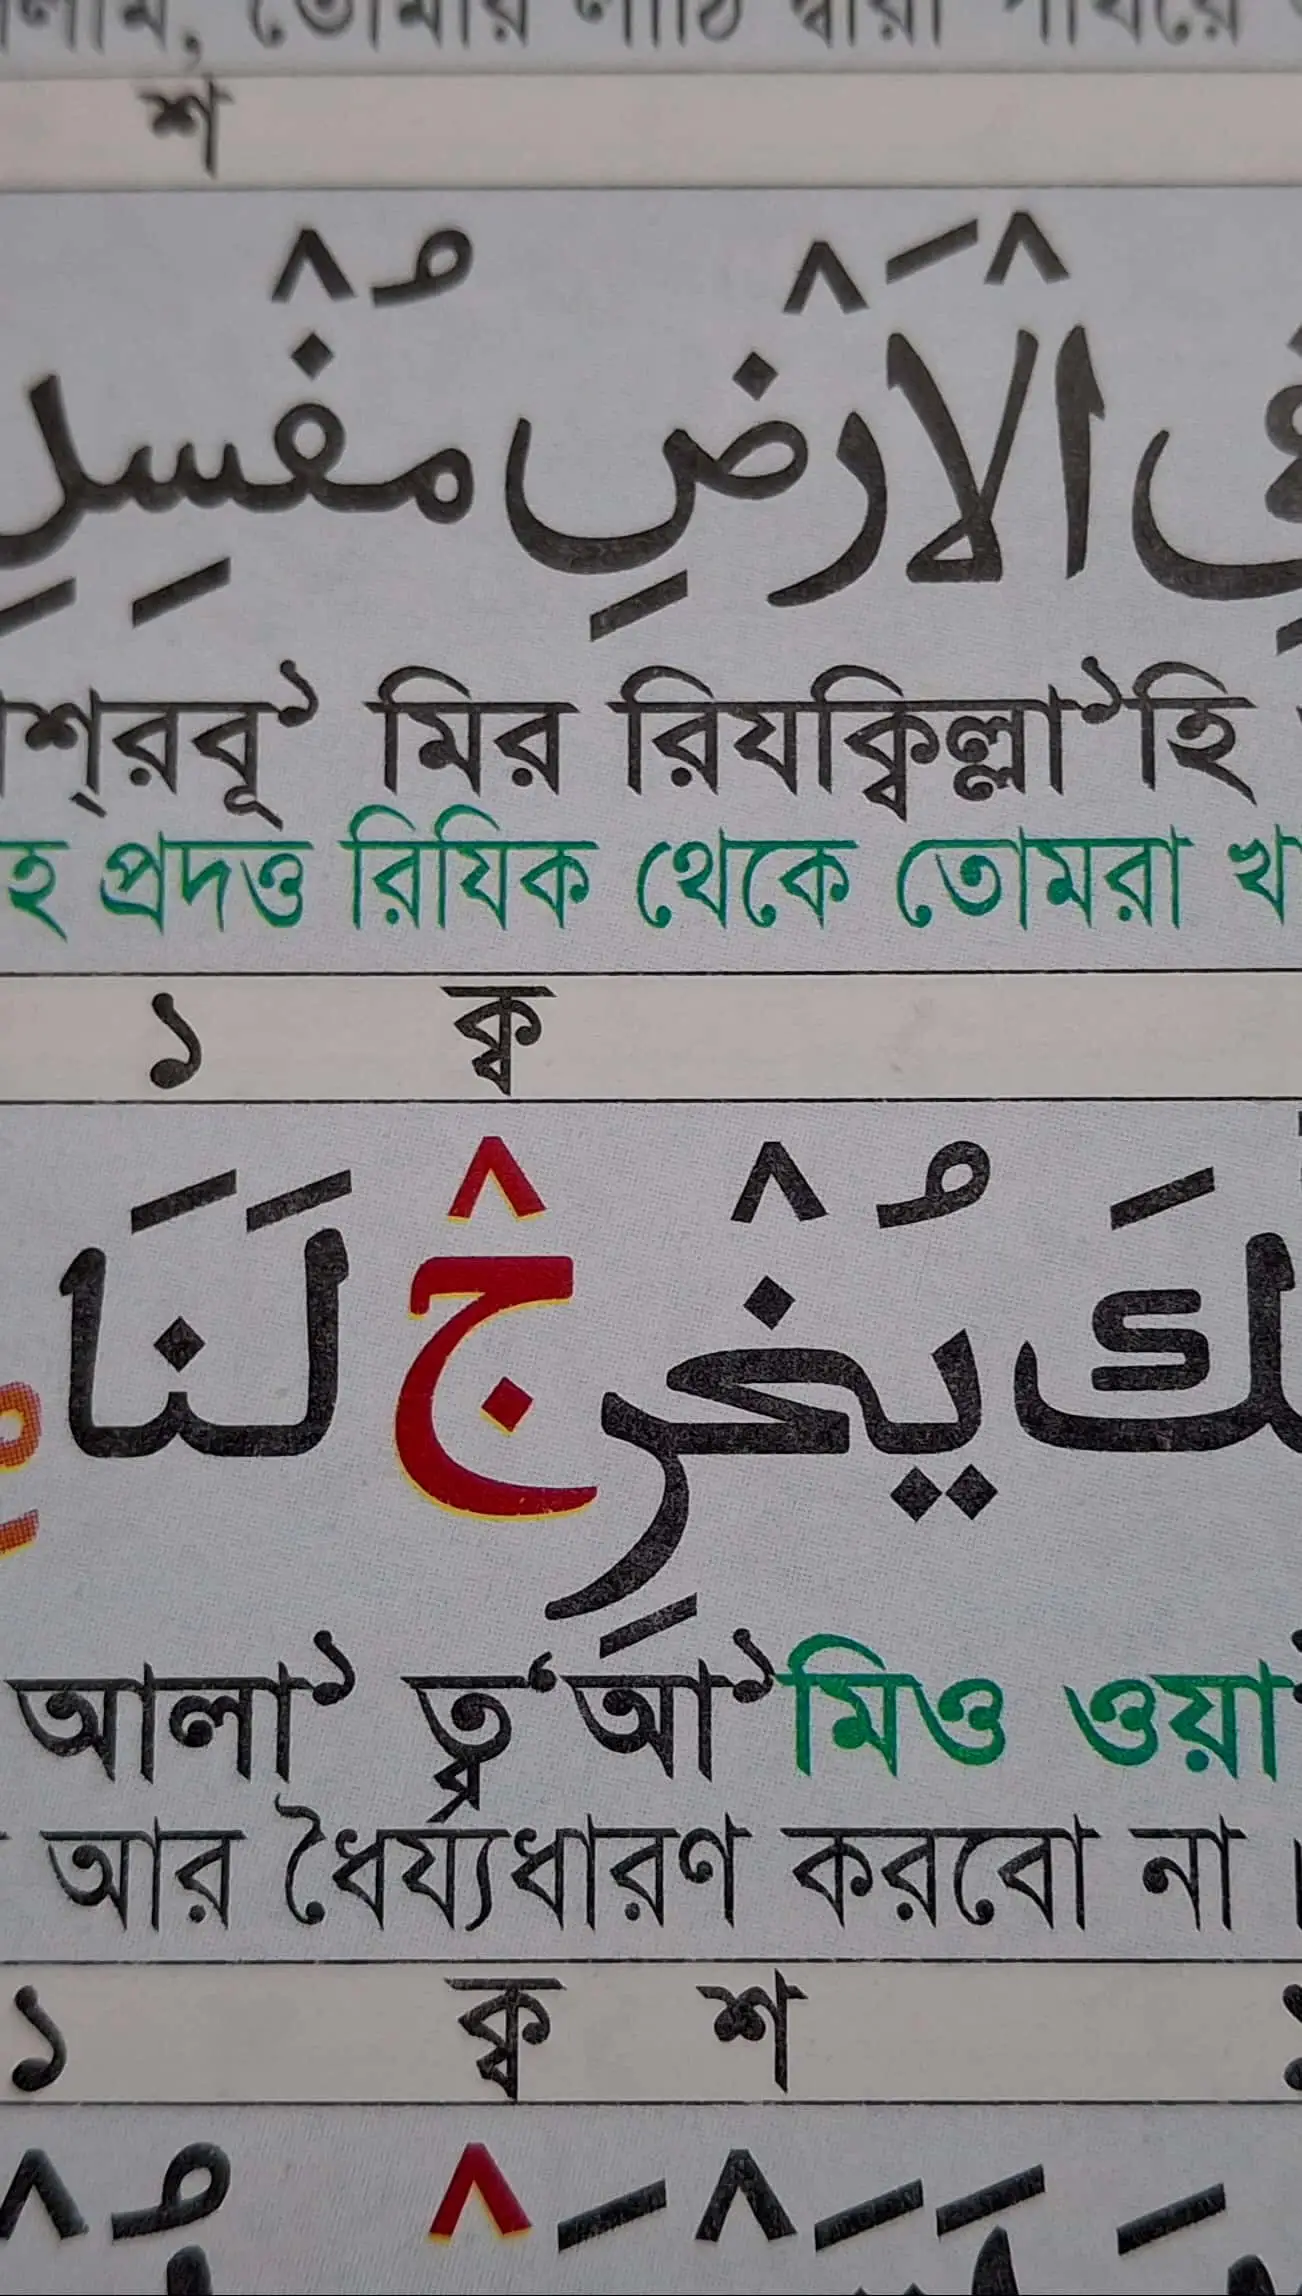 তোমার লাঠি দ্বারা পাথরে
শ
الْاَرْضِ مُفْسِدِ
শ্‌রবূ১ মির রিযক্বিল্লা১হি
হ প্রদত্ত রিযিক থেকে তোমরা খ
১ ক্ব
يُخْرِجْ لَنَا
আলা১ ত্ব‘আ১মিও ওয়া
আর ধৈর্য্যধারণ করবো না ।
১ ক্ব শ